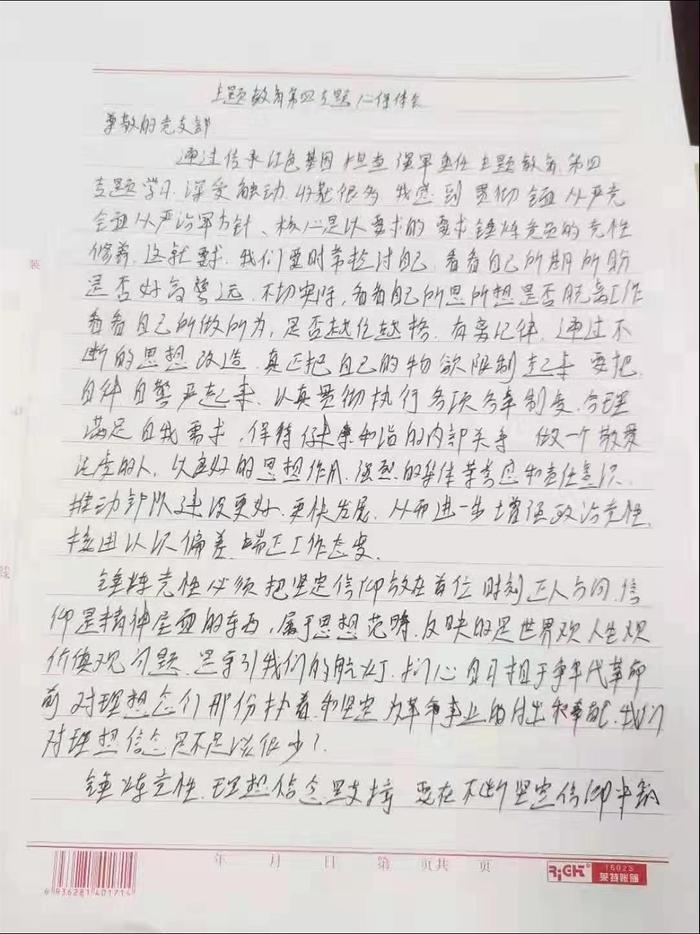 主题教育第四专题心得体会
尊敬的党支部
通过传承红色基因 担当强军重任主题教育第四
专题学习 深受触动 收获很多 我感到贯彻全面从严治党
全面从严治军方针、核心是以要求的要求锤炼党员的党性
修养 这就要求 我们要时常检讨自己 看看自己所期所盼
是否好高骛远 不切实际,看看自己所思所想是否脱离工作
看看自己所做所为,是否越位越格 有离纪律 通过不
断的思想改造 真正把自己的物欲限制起来 要把
自律自警严起来 认真贯彻执行各项规章制度、合理
满足自我需求,保持健康和谐的内部关系 做一个敬爱
的人,以良好的思想作风 强烈的集体荣誉感和责任意识
推动部队建设更好、更快发展、从而进一步增强政治党性,
认识偏差、端正工作态度、
锤炼党性必须把坚定信仰放在首位 时刻正人方向,信
仰是精神层面的东西,属于思想范畴,反映的是世界观人生观
价值观问题 是牵引我们的航灯 扪心自问相于争年代革命
前 对理想念们那份执着 和坚定 为革命事业的付出和奉献 我们
对理想信念是不是谈很少?
锤炼党性、理想信念是支撑 要在不断坚定信仰中
装
线
年 月 日 第 页共 页
6936281401714
RiCHT
1602S
莱特账簿